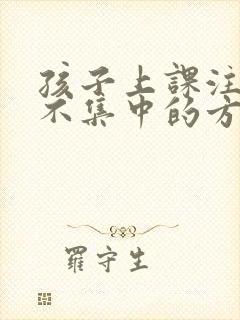 孩子上課注
不集中的方
羅守生